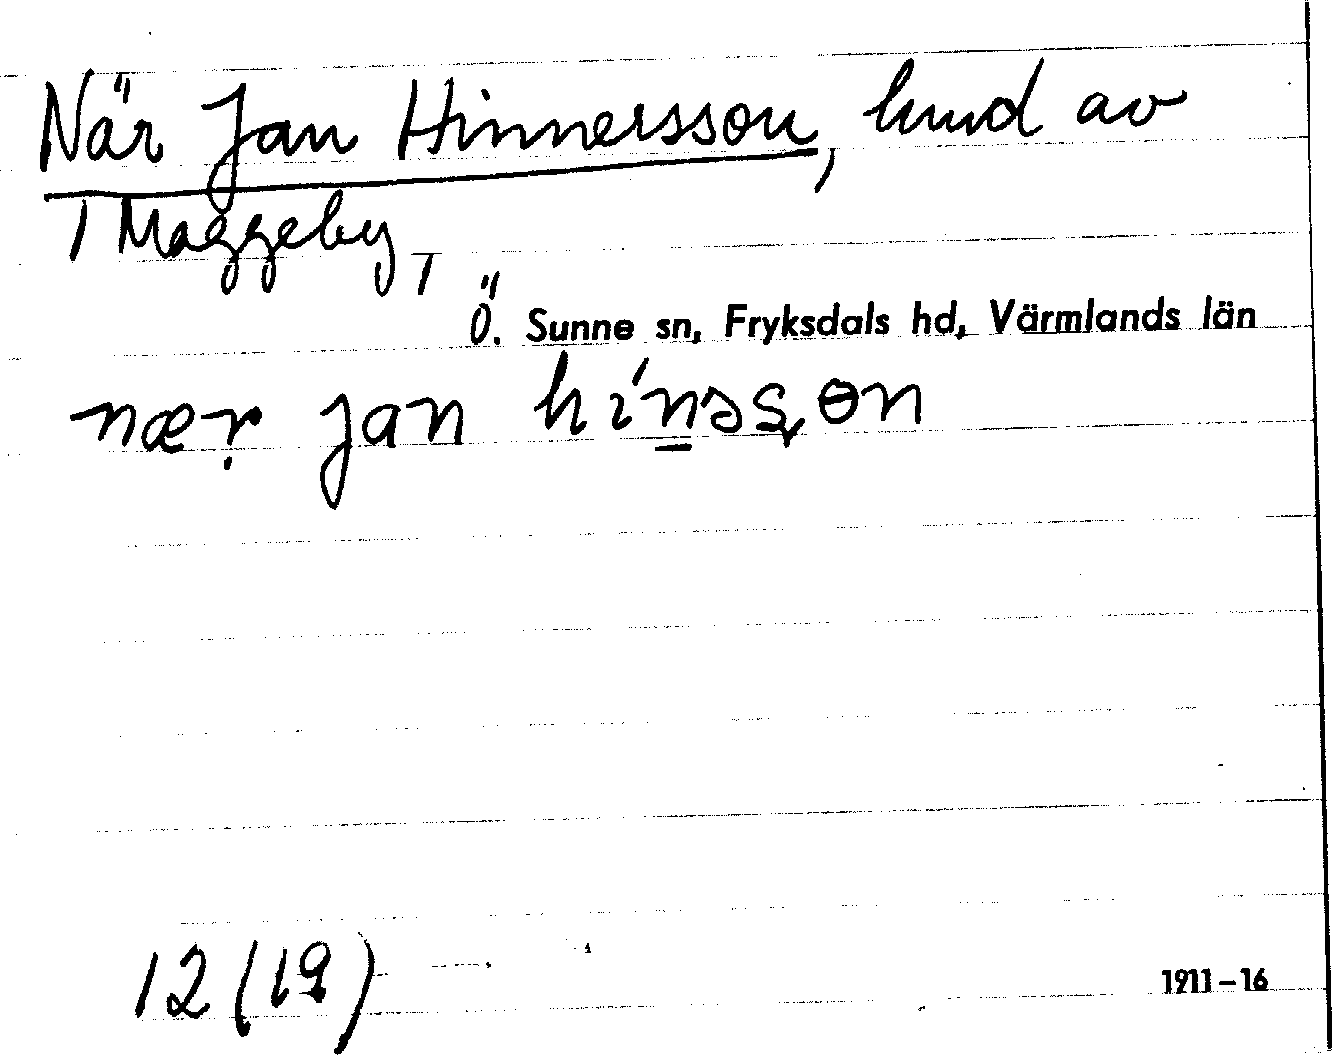 När Jan Hinnersson, kund av
/ Maggeby,
Ö. Sunne sn, Fryksdals hd, Värmlands län
nær jan hinsson
12 (19)
1911–16